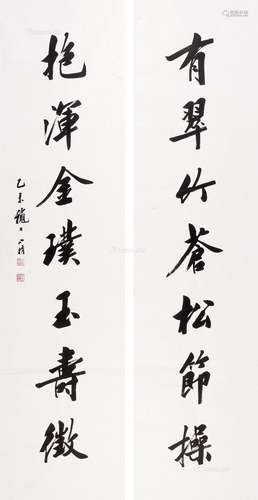 有翠竹苍松節操
抱渾金璞玉壽徵
乙未